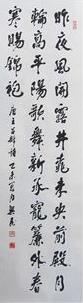 昨夜風開露井桃未央前殿月
輪高平陽歌舞新承寵簾外春
寒賜錦袍